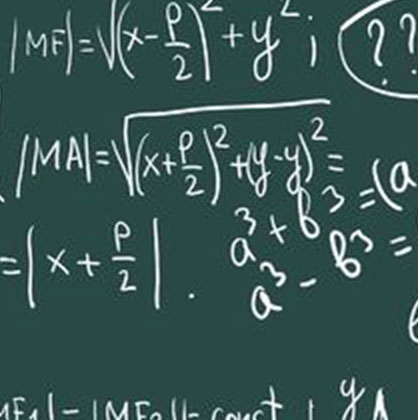 |MF|=√(x-p/2)²+y² ; ??
|MA|=√(x+p/2)²+(y-y)² =
=|x+p/2|.
a³+b³=(a
a³-b³=
MF₁|-|MF₂||=const ; y